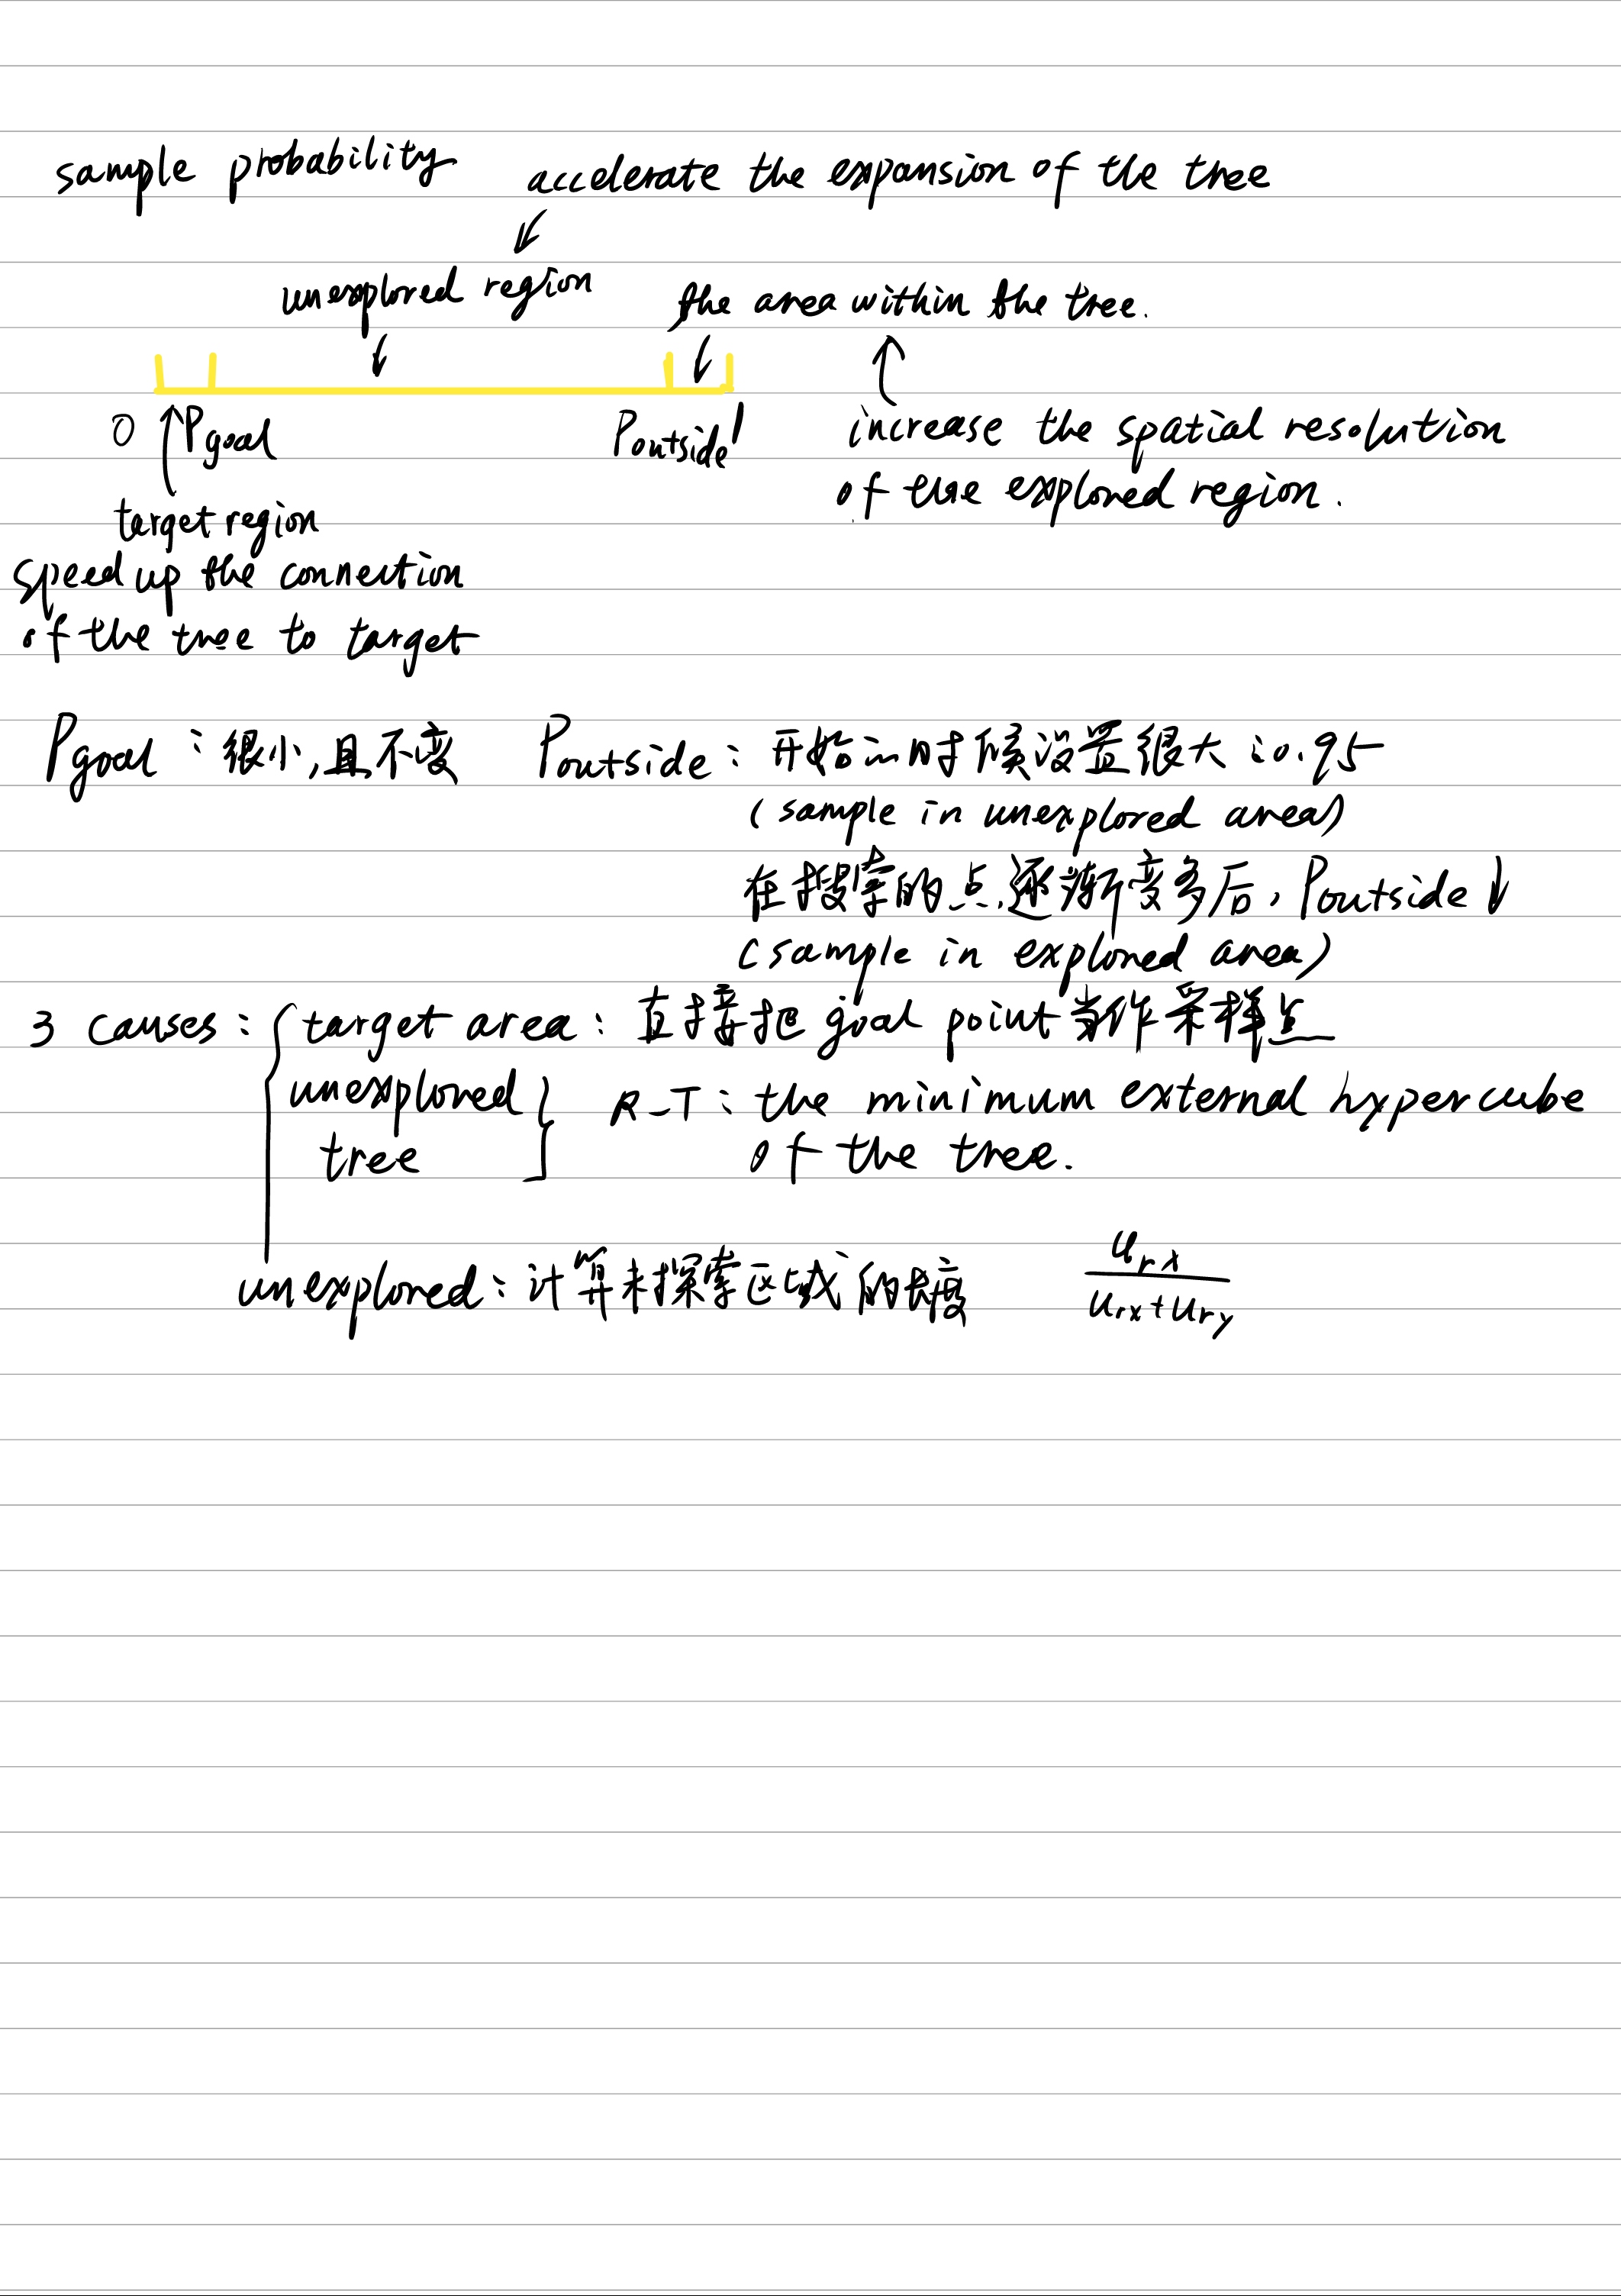 sample probability accelerate the expansion of the tree
unexplored region the area within the tree.
0 Pgoal Poutside 1 increase the spatial resolution
of the explored region.
target region
speed up the connection
of the tree to target
Pgoal：很小,且不变 Poutside：开始的时候设置很大：0.95
(sample in unexplored area)
在搜索的点逐渐变多后，Poutside↓
(sample in explored area)
3 causes: target area：直接把 goal point 当作采样点
unexplored R_T: the minimum external hypercube
tree of the tree.
unexplored：计算未探索区域的长度 urx / urx+ury